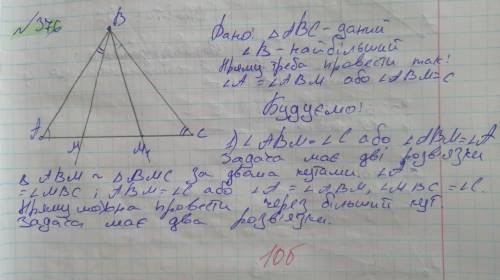 №376
B
A
M
M₁
C
Дано: △ABC - даний
∠B - найбільший
Пряму треба провести так:
∠A = ∠ABM або ∠ABM=C
Будуємо:
1) ∠ABM=∠C або ∠ABM=∠A
Задача має дві розв'язки
ABM ~ △BMC за двома кутами. ∠A=
=∠MBC і ABM=∠C або ∠A = ∠ABM, ∠MBC =∠C.
Пряму можна провести через більший кут.
Задача має два розв'язки.
10б